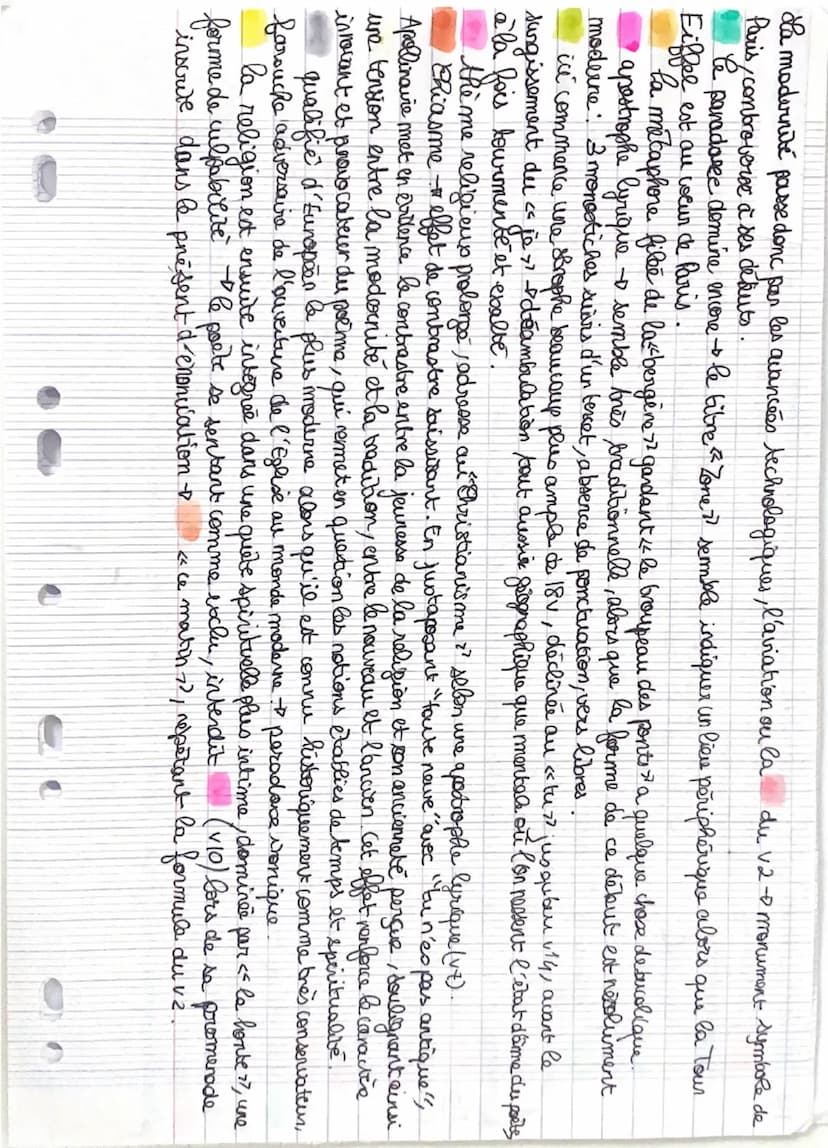 La modernité passe donc par les avancées technologiques, l'aviation ou la du v2 → monument symbole de
Paris, controverse à ses débuts.
le paradoxe domine encore → le titre « Zone » semble indiquer un lieu périphérique alors que la Tour
Eiffel est au cœur de Paris.
la métaphore filée de la « bergère » gardant « le troupeau des ponts » a quelque chose de bucolique.
apostrophe lyrique → semble très traditionnelle, alors que la forme de ce début est résolument
moderne : 3 monostiches suivis d'un tercet, absence de ponctuation, vers libres
ici commence une strophe beaucoup plus ample de 18v, déclinée au « tu » jusqu'au v14, avant le
surgissement du « je » → déambulation tout aussi géographique que mentale où l'on ressent l'état d'âme du poète
à la fois tourmenté et exalté.
thème religieux prolongé, adresse au "Christianisme" selon une apostrophe lyrique (v7).
Chiasme → effet de contrastre saisissant. En juxtaposant "toute neuve" avec "tu n'es pas antique",
Apollinaire met en évidence le contrastre entre la jeunesse de la religion et son ancienneté perçue, soulignant ainsi
une tension entre la modernité et la tradition, entre le nouveau et l'ancien. Cet effet renforce le caractère
innovant et provocateur du poème, qui remet en question les notions établies de temps et spiritualité.
qualifié d'Européen le plus moderne alors qu'il est connu historiquement comme très conservateur,
farouche adversaire de l'ouverture de l'Eglise au monde moderne → paradoxe ironique.
la religion est ensuite intégrée dans une quête spirituelle plus intime, dominée par « la honte », une
forme de culpabilité → le poète se sentant comme exclu, interdit (v10) lors de sa promenade
inscrite dans le présent d'énonciation → « ce matin », répétant la formule du v2.